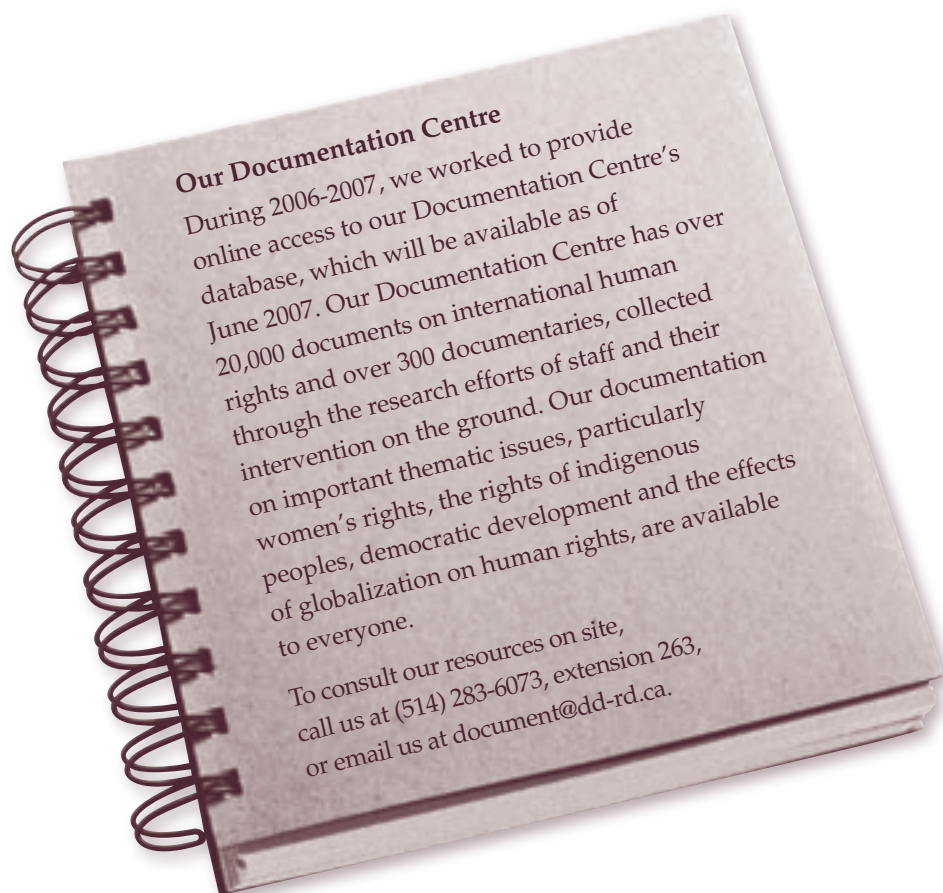 Our Documentation Centre
During 2006-2007, we worked to provide
online access to our Documentation Centre's
database, which will be available as of
June 2007. Our Documentation Centre has over
20,000 documents on international human
rights and over 300 documentaries, collected
through the research efforts of staff and their
intervention on the ground. Our documentation
on important thematic issues, particularly
women's rights, the rights of indigenous
peoples, democratic development and the effects
of globalization on human rights, are available
to everyone.
To consult our resources on site,
call us at (514) 283-6073, extension 263,
or email us at document@dd-rd.ca.